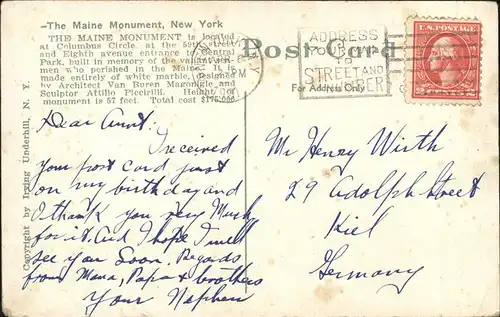 —The Maine Monument, New York
THE MAINE MONUMENT is located
at Columbus Circle, at the 59th street
and Eighth avenue entrance to Central
Park, built in memory of the valiant sea-
men who perished in the Maine. It is
made entirely of white marble, designed
by Architect Van Buren Magonigle and
Sculptor Attilio Piccirilli. Height of
monument is 57 feet. Total cost $175,000
Copyright by Irving Underhill, N. Y.
Post Card
For Address Only
ADDRESS
YOUR MAIL
TO
STREET AND
NUMBER
U.S. POSTAGE
Dear Aunt:
I received
your post card just
on my birthday and
I thank you very Much
for it. And I hope I will
see you Soon. Regards
from Mama, Papa & brothers
Your Nephew
Mr Henry Wirth
29 Adolph Street
Kiel
Germany